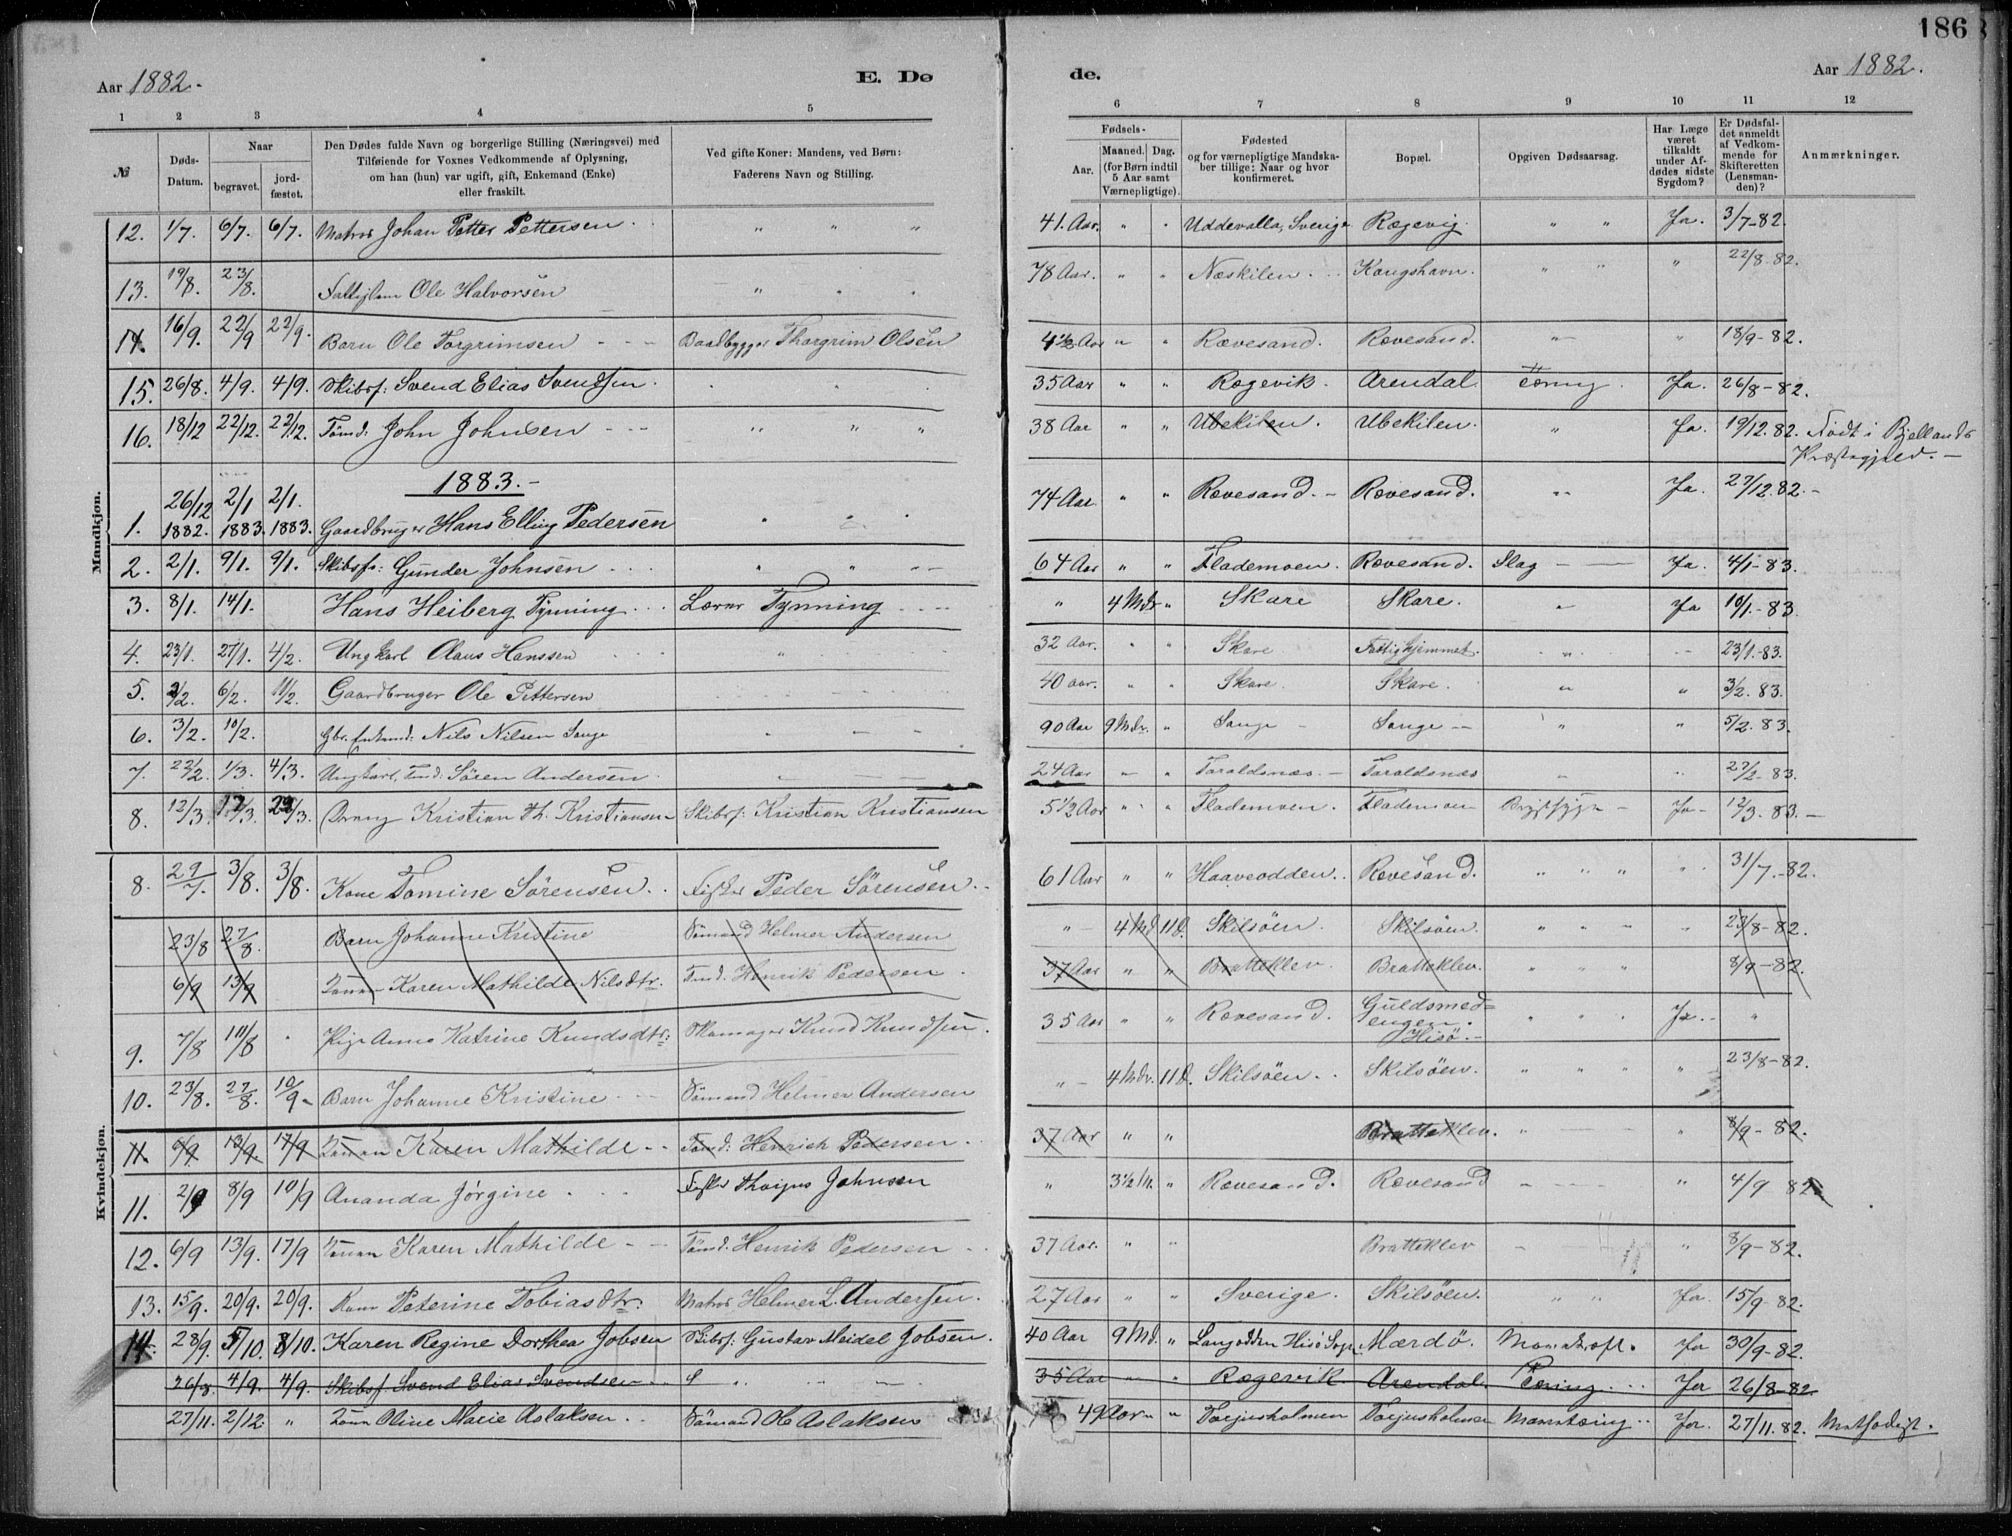 186
Aar 1882.
E. Dø
de.
Aar 1882.
1 2 3 4 5 6 7 8 9 10 11 12
№
Døds-Datum.
Naar
begravet.
jordfæstet.
Den Dødes fulde Navn og borgerlige Stilling (Næringsvei) med
Tilføiende for Voxnes Vedkommende af Oplysning,
om han (hun) var ugift, gift, Enkemand (Enke)
eller fraskilt.
Ved gifte Koner: Mandens, ved Børn:
Faderens Navn og Stilling.
Fødsels-
Aar.
Maaned. Dag.
(for Børn indtil
5 Aar samt
Værnepligtige).
Fødested
og for værnepligtige Mandska-
ber tillige: Naar og hvor
konfirmeret.
Bopæl.
Opgiven Dødsaarsag.
Har Læge
været
tilkaldt
under Af-
dødes sidste
Sygdom?
Er Dødsfal-
det anmeldt
af Vedkom-
mende for
Skifteretten
(Lensman-
den)?
Anmærkninger.
Mandkjøn.
12. 1/7. 6/7. 6/7. Matros Johan Petter Pettersen " " " 41. Aar. " " Uddevalla, Sverige Rægevig. " " Ja. 3/7-82.
13. 19/8. 23/8. Fattiglem Ole Halvorsen " " " 78 Aar. " " Næskilen. Kongshavn. " " " 22/8.82.
14. 16/9. 22/9 22/9. Barn Ole Torgrimsen Baadbygger Thorgrim Olsen 4 1/2 Aar " " Rævesand. Rævesand. " " 18/9-82.
15. 26/8. 4/9. 4/9. Skibsf. Svend Elias Svendsen. 35 Aar " " Rægevik. Arendal Tæring. Ja. 26/8-82.
16. 18/12 22/12. 22/12. Tømd: John Johnsen " " " 38 Aar " " Ubekilen. Ubekilen. " Ja. 19/12.82. Født i Bjellands Præstegjeld.
1883.
1. 26/12 1882. 2/1 1883. 2/1. 1883. Gaardbruger Hans Elling Pedersen 74 Aar " " Rævesand. Rævesand. " Ja. 27/12.82.
2. 2/1. 9/1. 9/1. Skibsfø: Gunder Johnsen " " " 64 Aar " " Flademoen. Rævesand. Slag Ja. 4/1-83.
3. 8/1. 14/1. Hans Heiberg Tynning Lærer Tynning " 4 Mdr " Skare Skare. " Ja 10/1.-83.
4. 23/1. 27/1. 4/2. Ungkarl Olaus Hanssen 32 Aar. " " Skare Fattighjemmet. " 23/1.-83.
5. 2/2. 6/2. 11/2. Gaardbruger Ole Pettersen 40 aar. " " Skare. Skare. " " 3/2.83.
6. 3/2. 10/2. Nils Nilsen Songe 90 Aar 9 Mdr. " Songe Songe " " 5/2.83.
7. 22/2. 1/3. 4/3. Ungkarl, Tmd: Søren Andersen 24 Aar " " Taraldsnæs. Taraldsnæs " 27/2-83.
8. 12/3. 17/3. /3. Dreng Kristian Th. Kristiansen Skibsf: Kristian Kristiansen 5 1/2 Aar " " Flademoen. Flademoen Brystsyge Ja 12/3.83.
Kvindekjøn.
8. 29/7. 3/8. 3/8. Kone Tomine Sørensen Fisker Peder Sørensen 61 Aar " " Haaveodden. Rævesand. " " " 31/7.-82.
23/8 27/8. Barn Johanne Kristine Sømand Helmer Andersen " 4 Md 11 D. Skilsøen. Skilsøen. " " " 23/8-82.
6/9 13/9 Konen Karen Mathilde Nilsdtr. Tmd. Henrik Pedersen 37 Aar " " Bratteklev. Bratteklev. " " " 8/9-82.
9. 7/8 10/8 " Pige Anne Katrine Knudsdtr: Skomager Knud Knudsen. 35 Aar " " Rævesand. Guldsmed-engen. Hisø. " " " Ja. "
10. 23/8. 27/8. 10/9 Barn Johanne Kristine Sømand Helmer Andersen " 4 Mdr. 11 D. Skilsøen. Skilsøen. " " " " 23/8-82.
11. 6/9 13/9. 17/9 Konen Karen Mathilde Tømd: Henrich Pedersen. 37 Aar " " Bratteklev. " " 8/9-82.
11. 2/9 8/9 10/9 Ananda Jørgine Fisker Johnsen " 3 1/2 M. " Rævesand. Rævesand " 4/9 82
12. 6/9 13/9. 17/9 Konen Karen Mathilde Tømd. Henrik Pedersen 37 Aar. " " Bratteklev " 8/9-82.
13. 15/9. 20/9. 20/9. Kone Peterine Tobiasdtr. Matros Helmer L. Andersen. 27 Aar " " Sverige. Skilsøen. " " Ja. 15/9-82.
14. 28/9. 5/10. 8/10. Karen Regine Dorthea Jobsen Skibsf. Gustav Meidel Jobsen. 40 Aar 9 Md. " Langodden Hisø Sogn. Mærdø. Mavekræft. Ja 30/9-82.
26/8. 4/9. 4/9. Skibsf. Svend Elias Svendsen 35 Aar Rægevik Arendal. Tæring. Ja 26/8-82
27/11. 2/12. " Konen Oline Marie Aslaksen. Sømand Ole Aslaksen 49 Aar " " Torjusholmen Torjusholmen Mavetæring Ja. 27/11.82. Methodist.